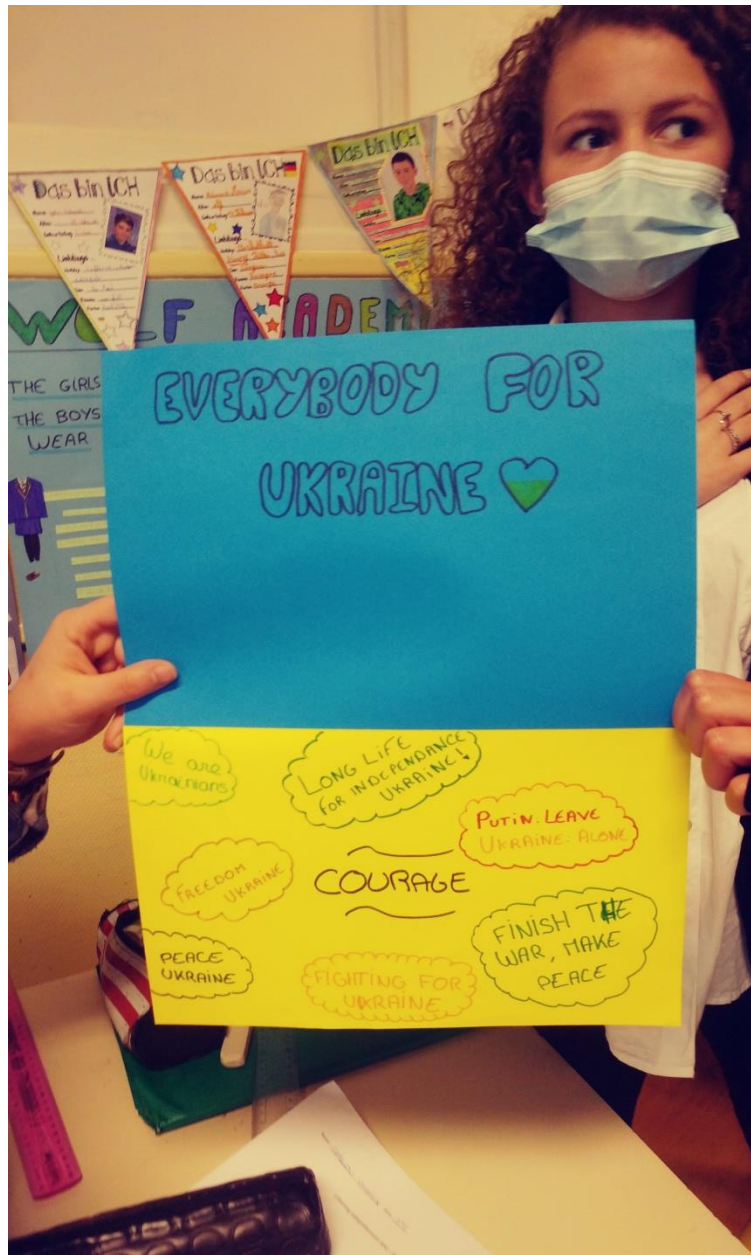 Das bin ICH
Das bin ICH
Das bin ICH
WOLF ACADEM
THE GIRLS
THE BOYS
WEAR
EVERYBODY FOR
UKRAINE
We are
Ukrainians
LONG LIFE
FOR INDEPENDANCE
UKRAINE!
PUTIN. LEAVE
UKRAINE. ALONE
FREEDOM
UKRAINE
COURAGE
FINISH THE
WAR, MAKE
PEACE
PEACE
UKRAINE
FIGHTING FOR
UKRAINE